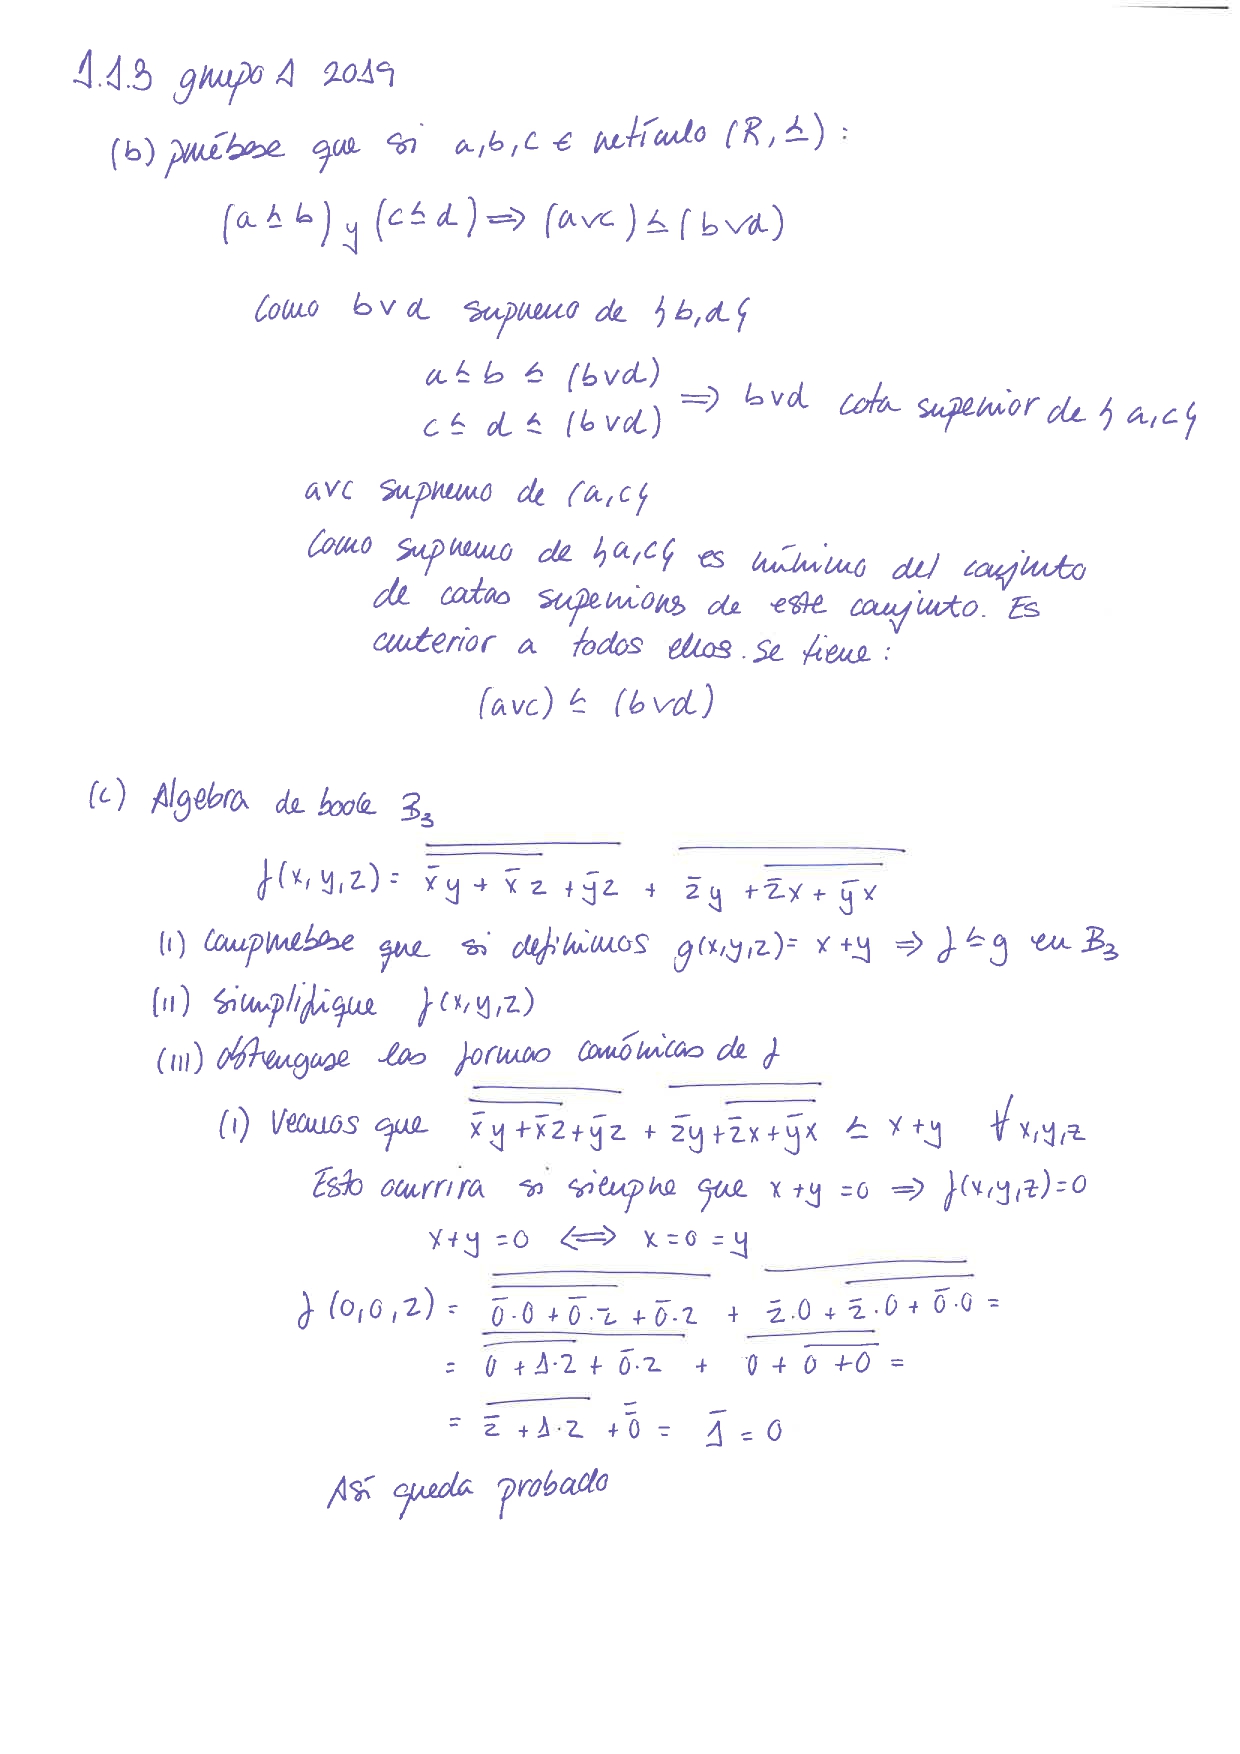 1.1.3 grupo 1 2019
(b) pruébese que si a,b,c ∈ retículo (R,≤):
(a≤b) y (c≤d) ⇒ (a∨c) ≤ (b∨d)
Como b∨d supremo de {b,d}
a≤b ≤ (b∨d)
⇒ b∨d cota superior de {a,c}
c≤ d ≤ (b∨d)
a∨c supremo de {a,c}
Como supremo de {a,c} es mínimo del conjunto
de cotas superiores de este conjunto. Es
anterior a todos ellos. Se tiene:
(a∨c) ≤ (b∨d)
(c) Algebra de boole B₃
f(x,y,z) = \overline{\overline{\bar{x}y + \bar{x}z} + \bar{y}z} + \overline{\bar{z}y + \overline{\bar{z}x + \bar{y}x}}
(i) compruebese que si definimos g(x,y,z) = x+y ⇒ f ≤ g en B₃
(ii) simplifique f(x,y,z)
(iii) obtengase las formas canónicas de f
(i) Veamos que \overline{\overline{\bar{x}y+\bar{x}z}+\bar{y}z} + \overline{\bar{z}y+\overline{\bar{z}x+\bar{y}x}} ≤ x+y ∀x,y,z
Esto ocurrira si siempre que x+y=0 ⇒ f(x,y,z)=0
x+y=0 ⟺ x=0=y
f(0,0,z) = \overline{\overline{\bar{0}·0+\bar{0}·z}+\bar{0}·z} + \overline{\bar{z}·0+\overline{\bar{z}·0+\bar{0}·0}} =
= \overline{\overline{0+1·z}+\bar{0}·z} + \overline{0+\overline{0+0}} =
= \overline{\bar{z}+1·z} + \bar{\bar{0}} = \bar{1} = 0
Así queda probado